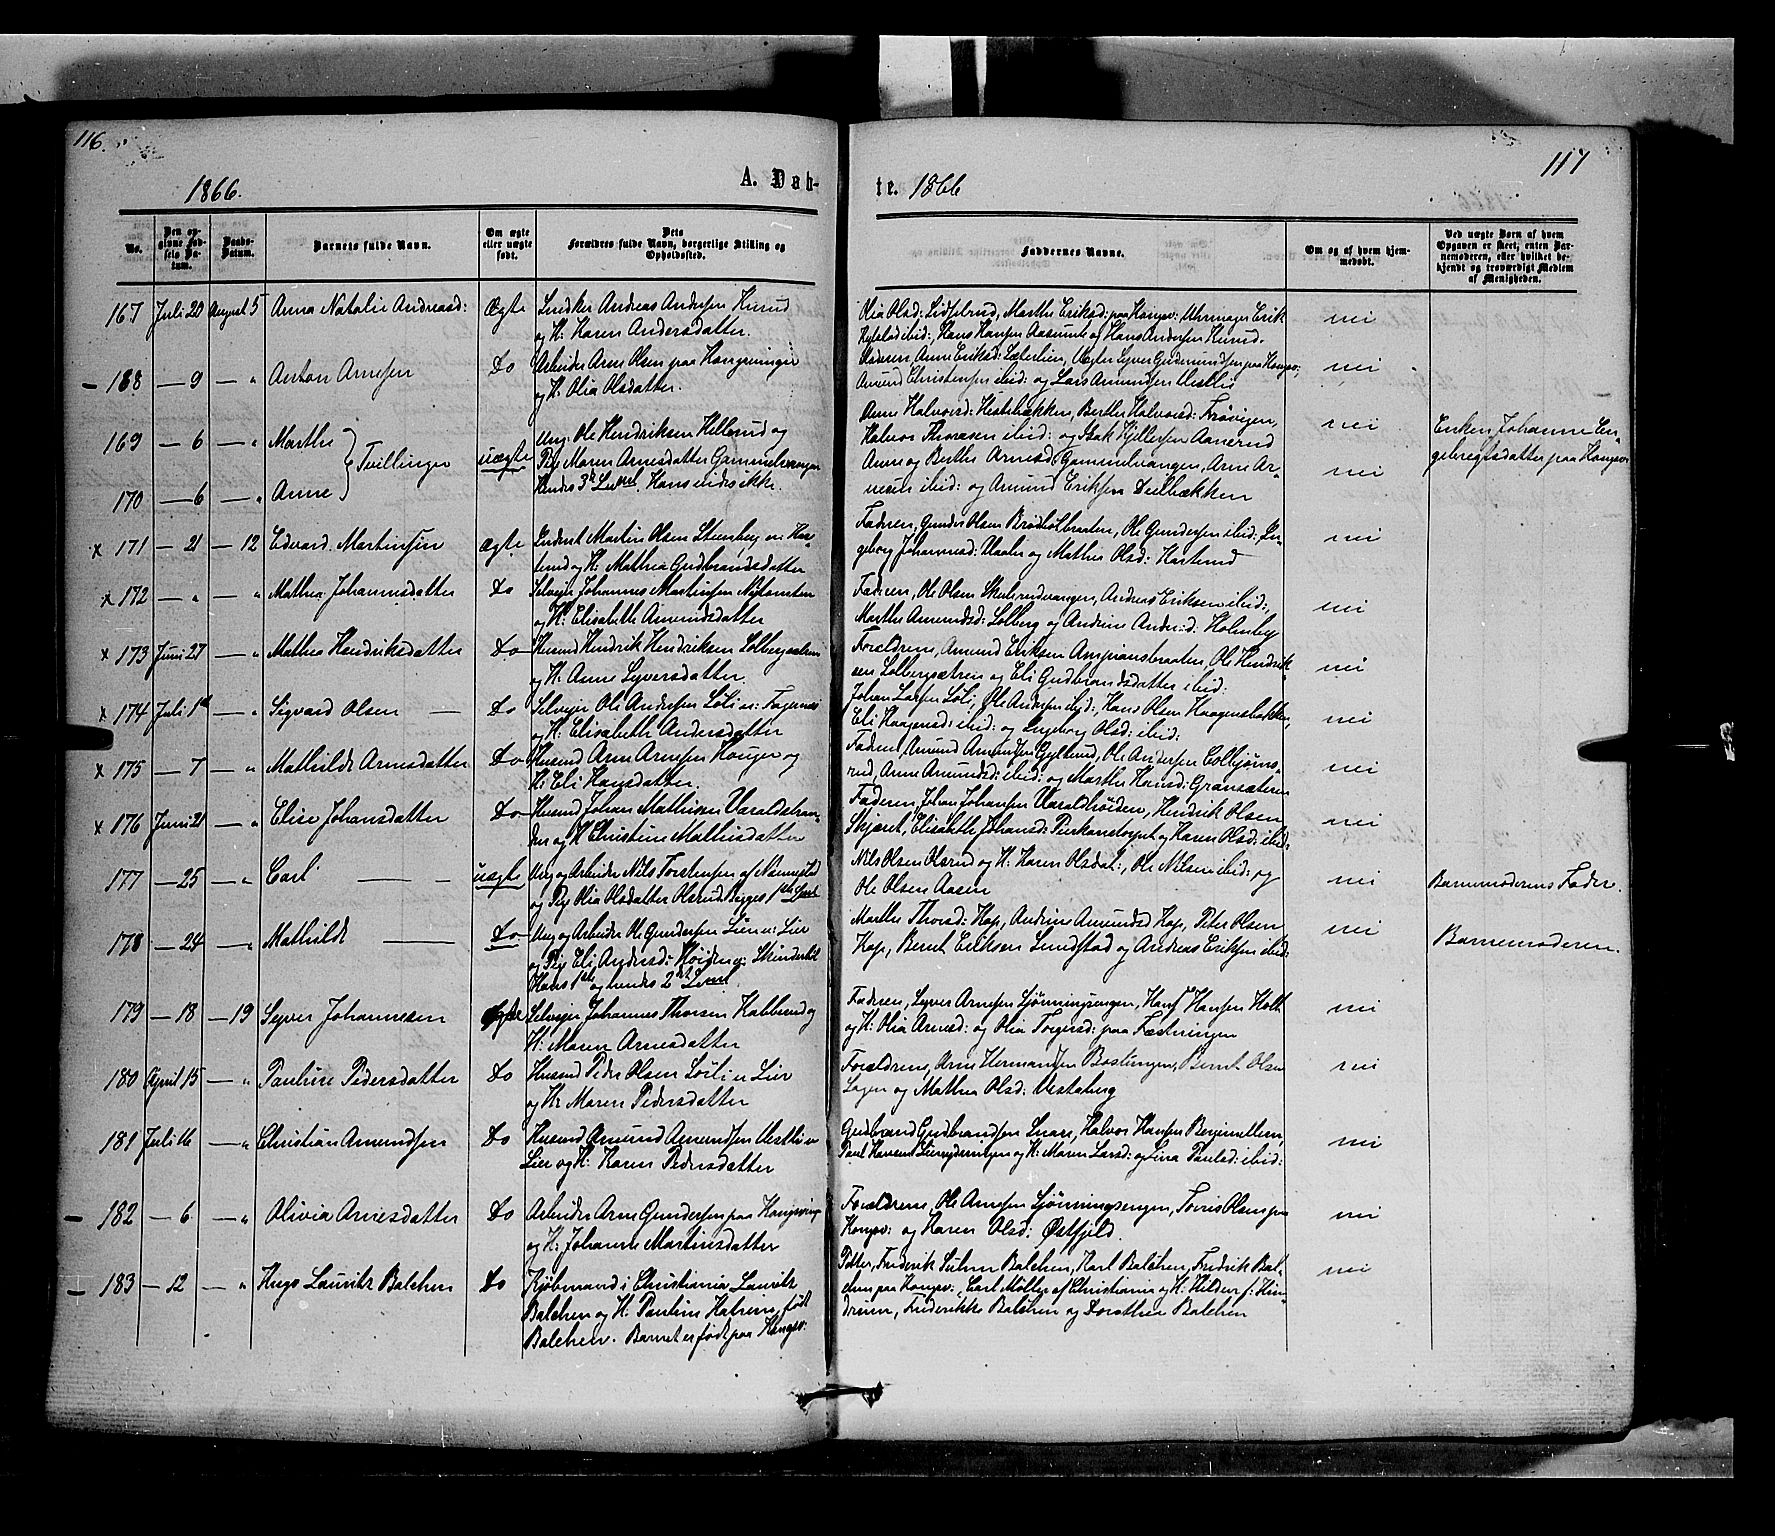 116.
117
1866.
A. Døb-
te. 1866
No.
Den op-
givne Fød-
sels Da-
tum.
Daabs-
Datum.
Barnets fulde Navn.
Om ægte
eller uægte
født.
Dets
Forældres fulde Navn, borgerlige Stilling og
Opholdssted.
Faddernes Navne.
Om og af hvem hjem-
medøbt.
Ved uægte Børn af hvem
Opgaven er skeet, enten Bar-
nemoderen, eller hvilket be-
kjendt og troværdigt Medlem
af Menigheden.
167 Juli 20 August 5 Anna Natalie Andreasd: Ægte
Andreas Andersen
og H: Karen Andersdatter.
Olia Olsd: Marthe Eriksd: paa Kongsv: Uhrmager Erik
ibid:, Hans Hansen Aasumb og Hans Andersen
nei
168 — 9 — " Anton Arnesen Do
Arbeider Arne Olsen paa Kongsvinger
og H: Olia Olsdatter.
Moderen, Anne Eriksd: Sæterlien, Vægter Syver Gudmundsen paa Kongsv:,
Amund Christensen ibid: og Lars Amundsen Vestlie
nei
169 — 6 — " Marthe
Tvillinger uægte
170 — 6 — " Anne
Ung. Ole Hendriksen Hellerud og
Pige Maren Arnesdatter Gammelvangen
Hendes 3d Leierm. Hans vides ikke.
Anne Halvorsd: Hestebækken, Berthe Halvorsd: Frøvigen,
Halvor Thoresen ibid: og Isak Kjeldsen Aanerud
nei
Anne og Berthe Arnesd: Gammelvangen, Arne Ar-
nesen ibid: og Amund Eriksen Deilbækken
nei
Enken Johanne En-
gebregtsdatter paa Kongsv:
x 171 — 21 — 12 Edvard Martinsen Ægte
Martin Olsen Steensberg
og H: Mathea Gudbrandsdatter
Faderen, Gunder Olsen Brødbølbraaten, Ole Gundersen ibid:, In-
geborg Johannesd: Vaaler og Mathea Olsd: Hasterud
nei
x 172 — " — " Mathea Johannesdatter Do
Selveier Johannes Martinsen
og H: Elisabeth Amundsdatter
Faderen, Ole Olsen Andreas Eriksen ibid:,
Marthe Amundsd: Solberg og Andrine Andersd: Holmby
nei
x 173 Juni 27 — " Mathea Hendriksdatter Do
Husmd Hendrik Hendriksen Solbergsæteren
og H: Anne Syversdatter.
Forældrene, Amund Eriksen Ole Hendrik-
sen Solbergsætren og Eli Gudbrandsdatter ibid:
nei
x 174 Juli 1st — " Sigvard Olsen — Do
Selveier Ole Andersen Søli
og H: Elisabeth Andersdatter
Johan Larsen Søli, Ole Andersen ibid: Hans Olsen Haagensbakken,
Eli Haagensd: ibid: og Ingeborg Olsd: ibid:
nei
x 175 — 7 — " Mathilde Arnesdatter Do
Husmd Arne Arnesen Kouger og
H: Eli Hansdatter.
Faderen, Amund Amundsen Ole Andersen
rud, Anne Amundsd: ibid: og Marthe Hansd: Gransæteren
nei
x 176 Juni 21 — " Elise Johansdatter Do
Husmd Johan Mathisen Varaldstran-
den og H: Christine Mathisdatter
Faderen, Johan Johansen Varaldhøiden, Hendrik Olsen
Skjæret, Elisabeth Johansd: og Karen Olsd: ibid:
nei
177 — 25 — " Carl — — uægte
Ung og Arbeider Nils Torstensen af
og Pige Olia Olsdatter Olsrud Begges 1ste Leierm.
Nils Olsen Olsrud og H: Karen Olsdat:, Ole Nilsen ibid: og
Ole Olsen Aasen
nei
Barnemoderens Fader.
178 — 24 — " Mathilde — Do
Ung og Arbeider Ole Gundersen Lien i Lier
og Pige Eli Andersd: Høiden
Hans 1ste og hendes 2det Leierm.
Marthe Thorsd: Kap, Andrine Amundsd: Kap, Peter Olsen
Kap, Bernt Eriksen Sundstad og Andreas Eriksen ibid:
nei
Barnemoderen.
179 — 18 — 19 Syver Johannesen Ægte
Selveier Johannes Thoresen Kabberud og
H: Maren Arnesdatter
Faderen, Syver Arnesen Sjønningsengen, Hans Hansen Holt
og H: Olia Arnesd: og Olia Torgersd: paa Fæstningen
nei
180 April 15 — " Pauline Pedersdatter Do
Husmd Peder Olsen Søli i Lier
og H: Maren Pedersdatter
Forældrene, Arne Hermansen Bastingen, Bernt Olsen
og Mathea Olsd: Vestaberg
nei
181 Juli 16 — " Christian Amundsen Do
Husmd Amund Amundsen Vestli i
Lier og H: Karen Pedersdatter
Gudbrand Gudbrandsen Snare, Halvor Hansen
Paul og H: Maren Larsd: og Lina Paulsd: ibid:
nei
182 — 6 — " Olivia Arnesdatter Do
Arbeider Arne Gundersen paa Kongsvinger
og H: Johanne Martinsdatter
Forældrene, Ole Arnesen Sjønningsengen, Torris Olsen paa
Kongsv: og Karen Olsd: Østfjeld.
nei
183 — 12 — " Hugo Lauritz Balchen Do
Kjøbmand i Christiania Lauritz
Balchen og H: Pauline Katrine, født
Balchen. Barnet er født paa Kongsv:
Petter, Frederik Balchen, Karl Balchen, Fredrik Bal-
chen paa Kongsv:, Carl Møller af Christiania og H: Hilda f: Hin-
drum, Frederikke Balchen og Dorothea Balchen
nei